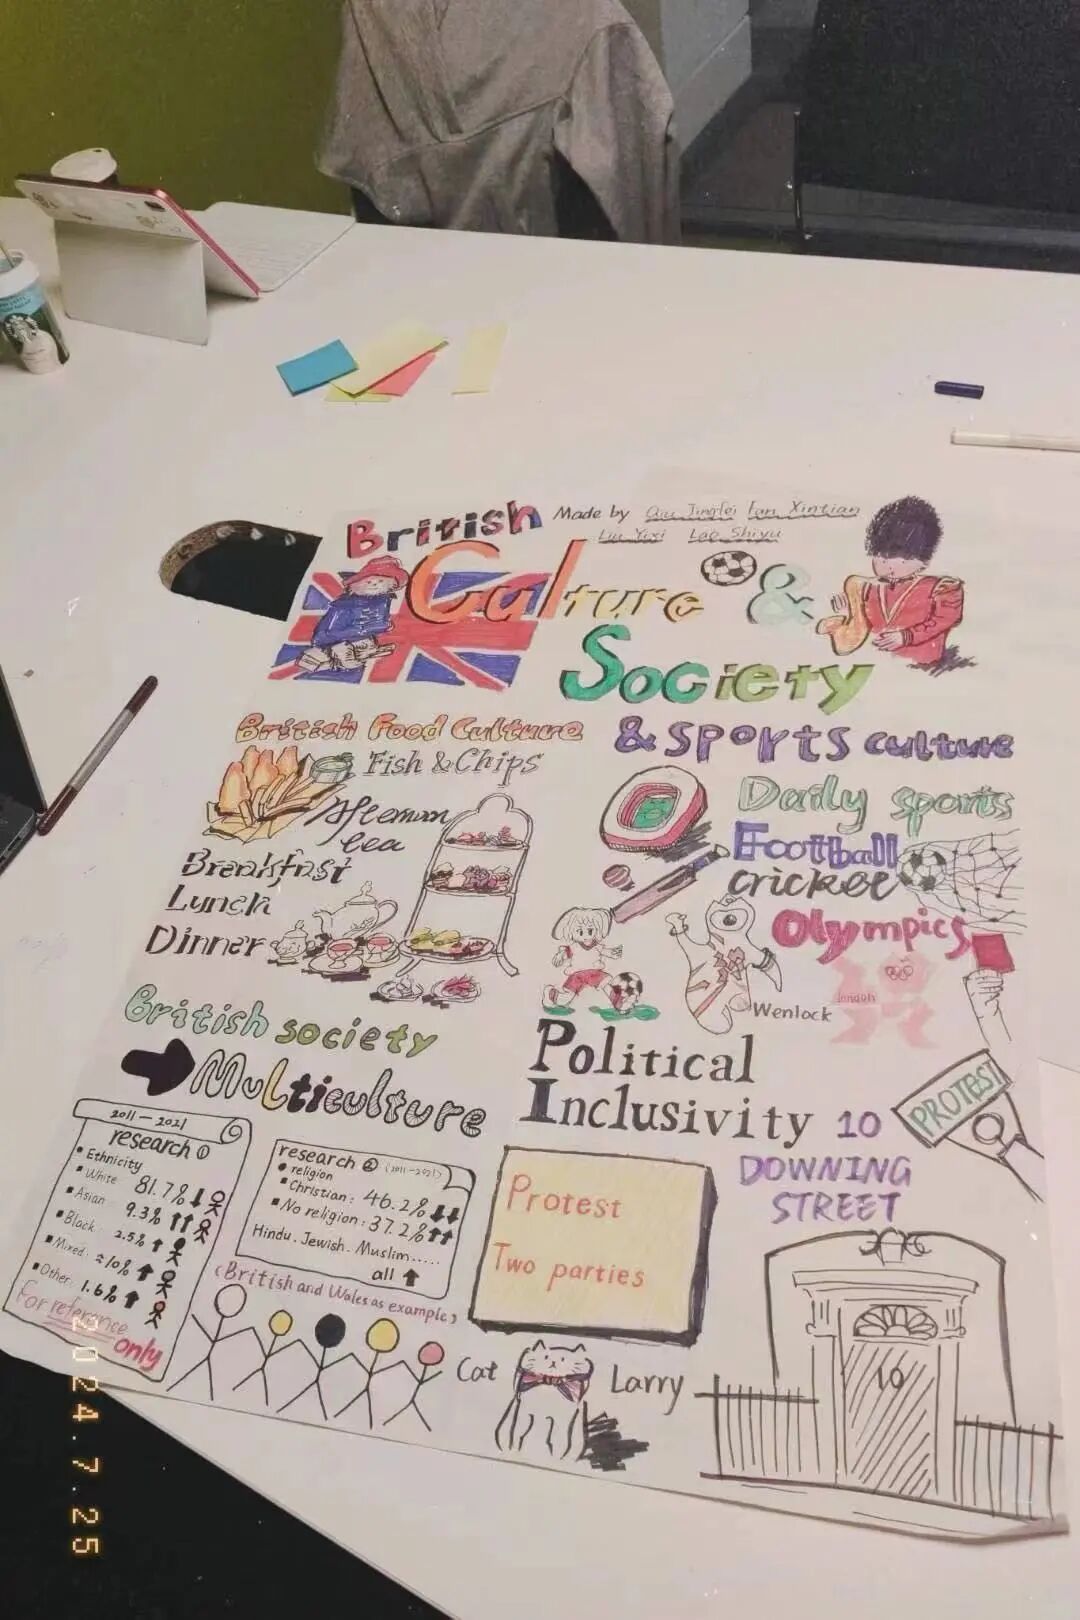 British
Made by Qiu Jingfei Fan Xintian
Liu Yixi Lao Shiyu
Culture &
Society
British Food Culture
Fish & Chips
Afternoon
tea
Breakfast
Lunch
Dinner
& sports culture
Daily sports
Football
cricket
Olympics
london
Wenlock
British society
Multiculture
2011-2021
research ①
• Ethnicity
▪ White 81.7% ↓
▪ Asian 9.3% ↑↑
▪ Black 2.5% ↑
▪ Mixed: ≥10% ↑
▪ Other: 1.6% ↑
For reference
only
research ② (2011-2021)
• religion
▪ Christian: 46.2% ↓↓
▪ No religion: 37.2% ↑↑
Hindu. Jewish. Muslim......
all ↑
(British and Wales as example)
Political
Inclusivity
Protest
Two parties
Cat Larry
PROTEST
10
DOWNING
STREET
10
2024.7.25